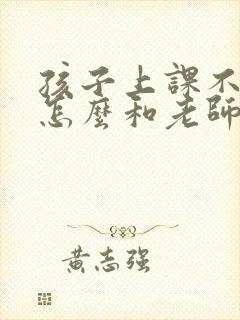 孩子上課不
怎麼和老師
黃志强